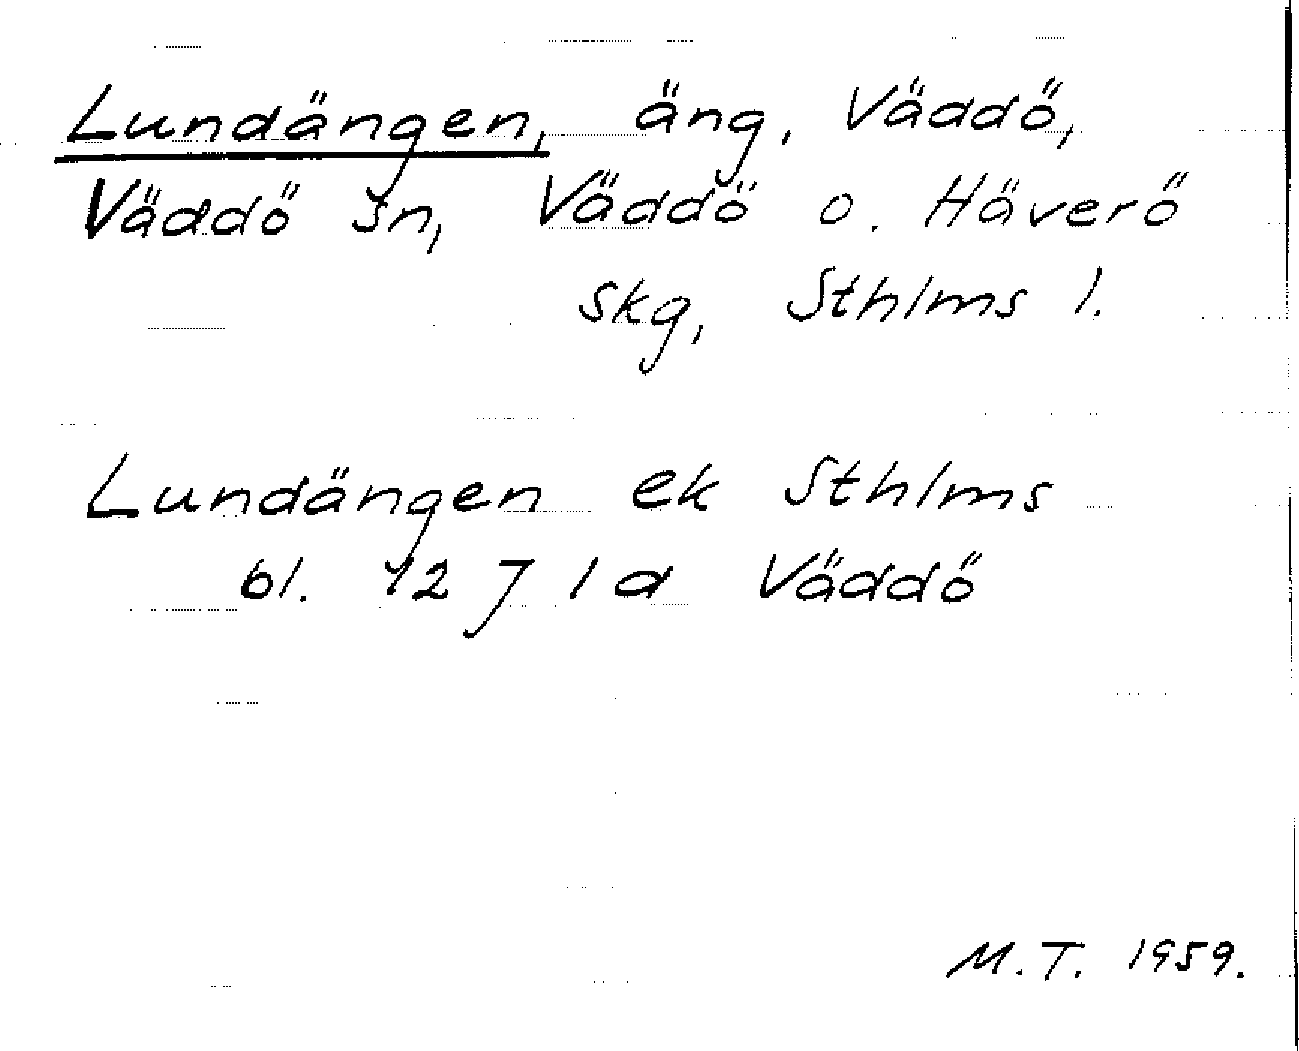 Lundängen, äng, Väddö,
Väddö sn, Väddö o. Häverö
skg, Sthlms l.
Lundängen ek Sthlms
bl. 12 J 1 d Väddö
M.T. 1959.